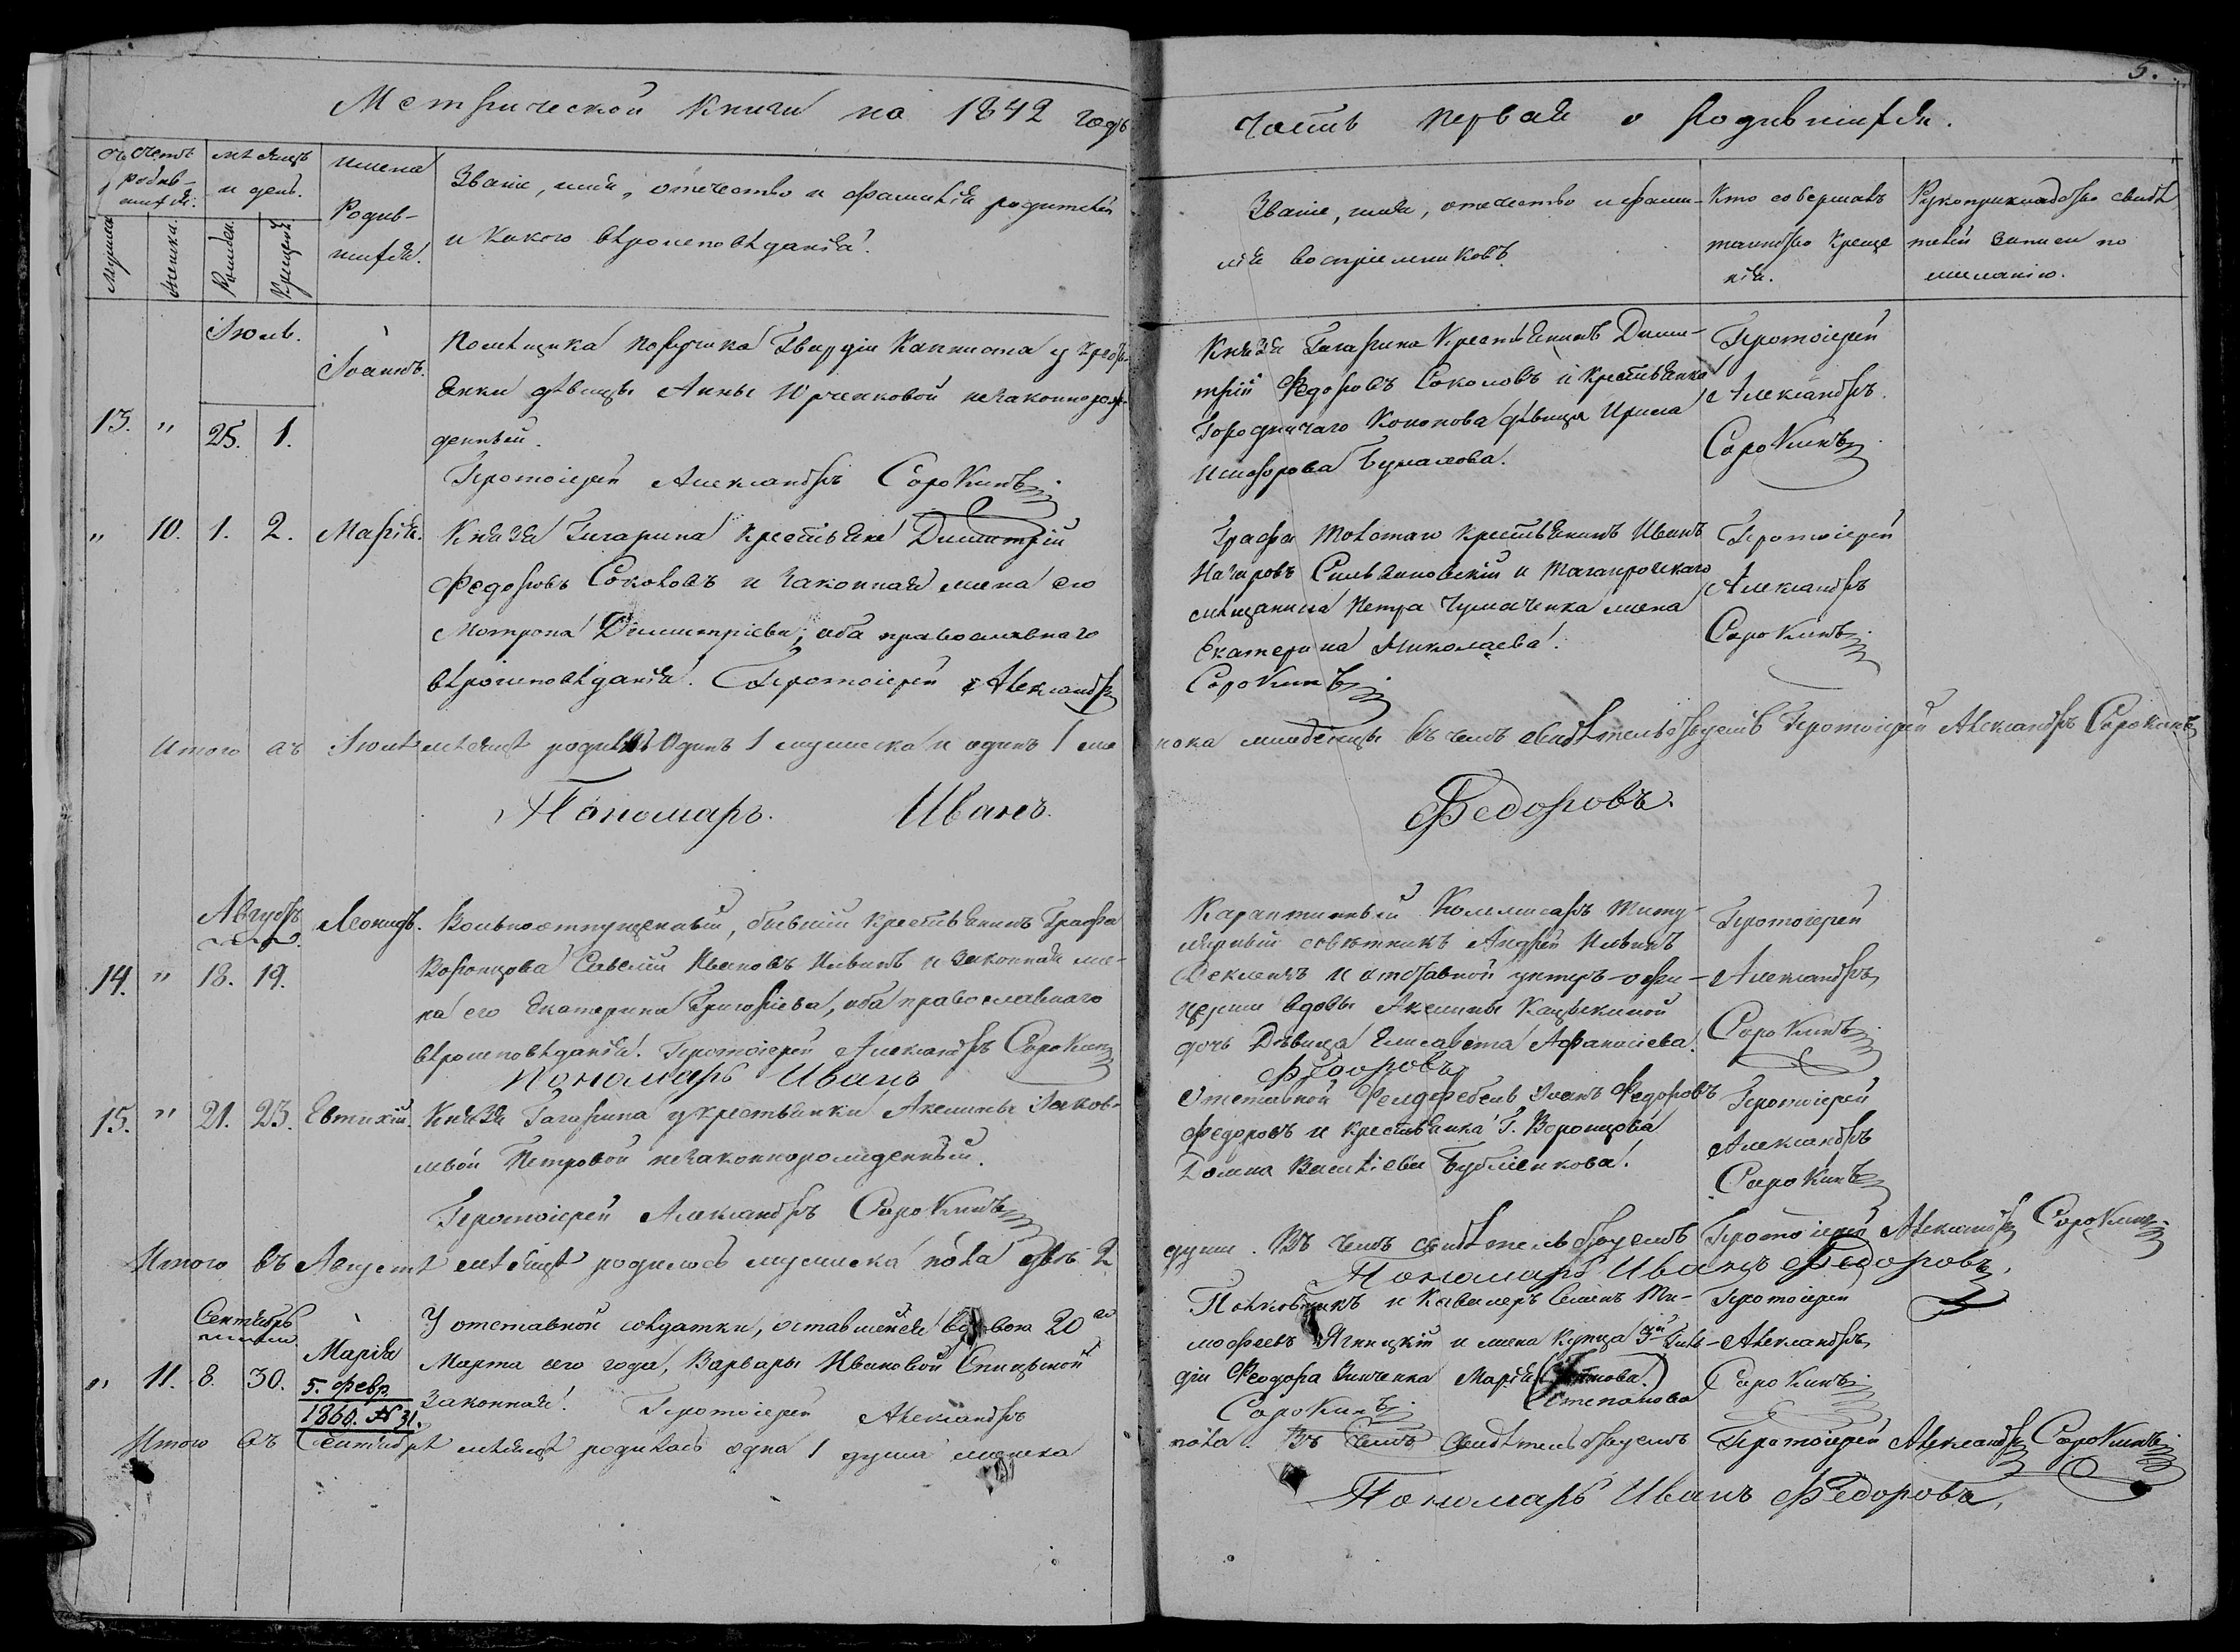 5.
Метрической книги на 1842 годъ
часть первая о родившихся.
Счетъ родив-шихся.
мѣсяцъ и день.
имена Родив-шихся.
Званіе, имя, отечество и фамилія родителей
и какого вѣроисповѣданія.
Званіе, имя, отечество и фами-
лія воспріемниковъ.
Кто совершалъ
таинство креще
нія.
Рукоприкладство свидѣ
телей записи по
желанію.
Мужска
Женска.
Рожден.
Крещен.
Іюль.
13. " 25. 1. Іоаннъ.
Помѣщика Поручика Гвардіи Капниста у крестьянки
дѣвицы Анны Юрченковой незаконнорож-
денный.
Протоіерей Александръ Сорокинъ
Князя Гагарина Крестьянинъ Дими-
трій Федоровъ Соколовъ и крестьянка
Городничаго Кононова дѣвица Ирина
Протоіерей
Александръ
Сорокинъ
" 10. 1. 2. Марія.
Князя Гагарина крестьяне Димитрій
Федоровъ Соколовъ и законная жена его
Матрона Димитріева, оба православнаго
вѣроисповѣданія. Протоіерей Александръ
Графа Толстаго крестьянинъ Иванъ
Назаровъ Сильвановскій и Таганрогскаго
мѣщанина Петра Чумаченка жена
Екатерина Николаева.
Сорокинъ
Протоіерей
Александръ
Сорокинъ
Итого въ Іюлѣ мѣсяцѣ родилось Одинъ 1 мужеска и одинъ 1 же
нска младенцы въ чемъ свидѣтельствуемъ Протоіерей Александръ Сорокинъ
Пономарь. Иванъ. Федоровъ.
Августъ
14. " 18. 19. Леонидъ.
Вольноотпущенный, бывшій крестьянинъ Графа
Воронцова Савелій Ивановъ Ильинъ и законная же-
на его Екатерина Григоріева, оба православнаго
вѣроисповѣданія. Протоіерей Александръ Сорокинъ
Пономарь Иванъ
Карантинный Коммисаръ Титу-
лярный совѣтникъ Андрей
и отставной унтеръ-офи-
церши вдовы Акилины
дочь Дѣвица Елисавета Афанасіева.
Федоровъ
Протоіерей
Александръ
Сорокинъ
15. " 21. 23. Евтихій.
Князя Гагарина у крестьянки Акилины Іаков-
левой Петровой незаконнорожденный.
Протоіерей Александръ Сорокинъ
Отставной Фелдфебель Іоанъ Федоровъ
Федоровъ и крестьянка Г. Воронцова
Домна Василіева
Протоіерей
Александръ
Сорокинъ
Итого въ Августѣ мѣсяцѣ родилось мужеска пола двѣ 2
души. Въ чемъ свидѣтельствуемъ Протоіерей Александръ Сорокинъ
Пономарь Иванъ Федоровъ.
Сентябрь
" 11. 8. 30. Марія
5. февр.
1860. № 31.
У отставной солдатки, оставшейся вдовою 20го
Марта сего года, Варвары Ивановой Спицыной
законная. Протоіерей Александръ
Полковникъ и Кавалеръ Семенъ Ти-
мофеевъ Ягницкій и жена купца 3й Гиль-
діи Феодора Зинченка Марія
Степанова
Сорокинъ
Протоіерей
Александръ
Сорокинъ
Итого въ Сентябрѣ мѣсяцѣ родилась одна 1 душа женска
пола. Въ чемъ свидѣтельствуемъ Протоіерей Александръ Сорокинъ
Пономарь Иванъ Федоровъ,